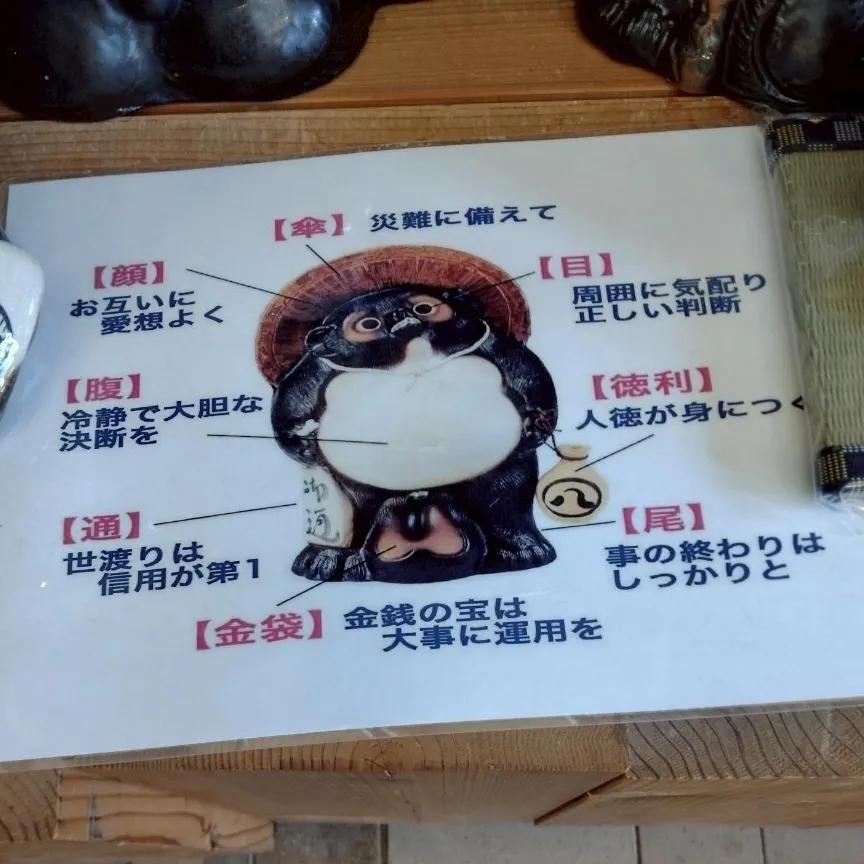 【傘】 災難に備えて
【顔】
お互いに
愛想よく
【目】
周囲に気配り
正しい判断
【腹】
冷静で大胆な
決断を
【徳利】
人徳が身につく
【通】
世渡りは
信用が第1
【尾】
事の終わりは
しっかりと
【金袋】 金銭の宝は
大事に運用を
八